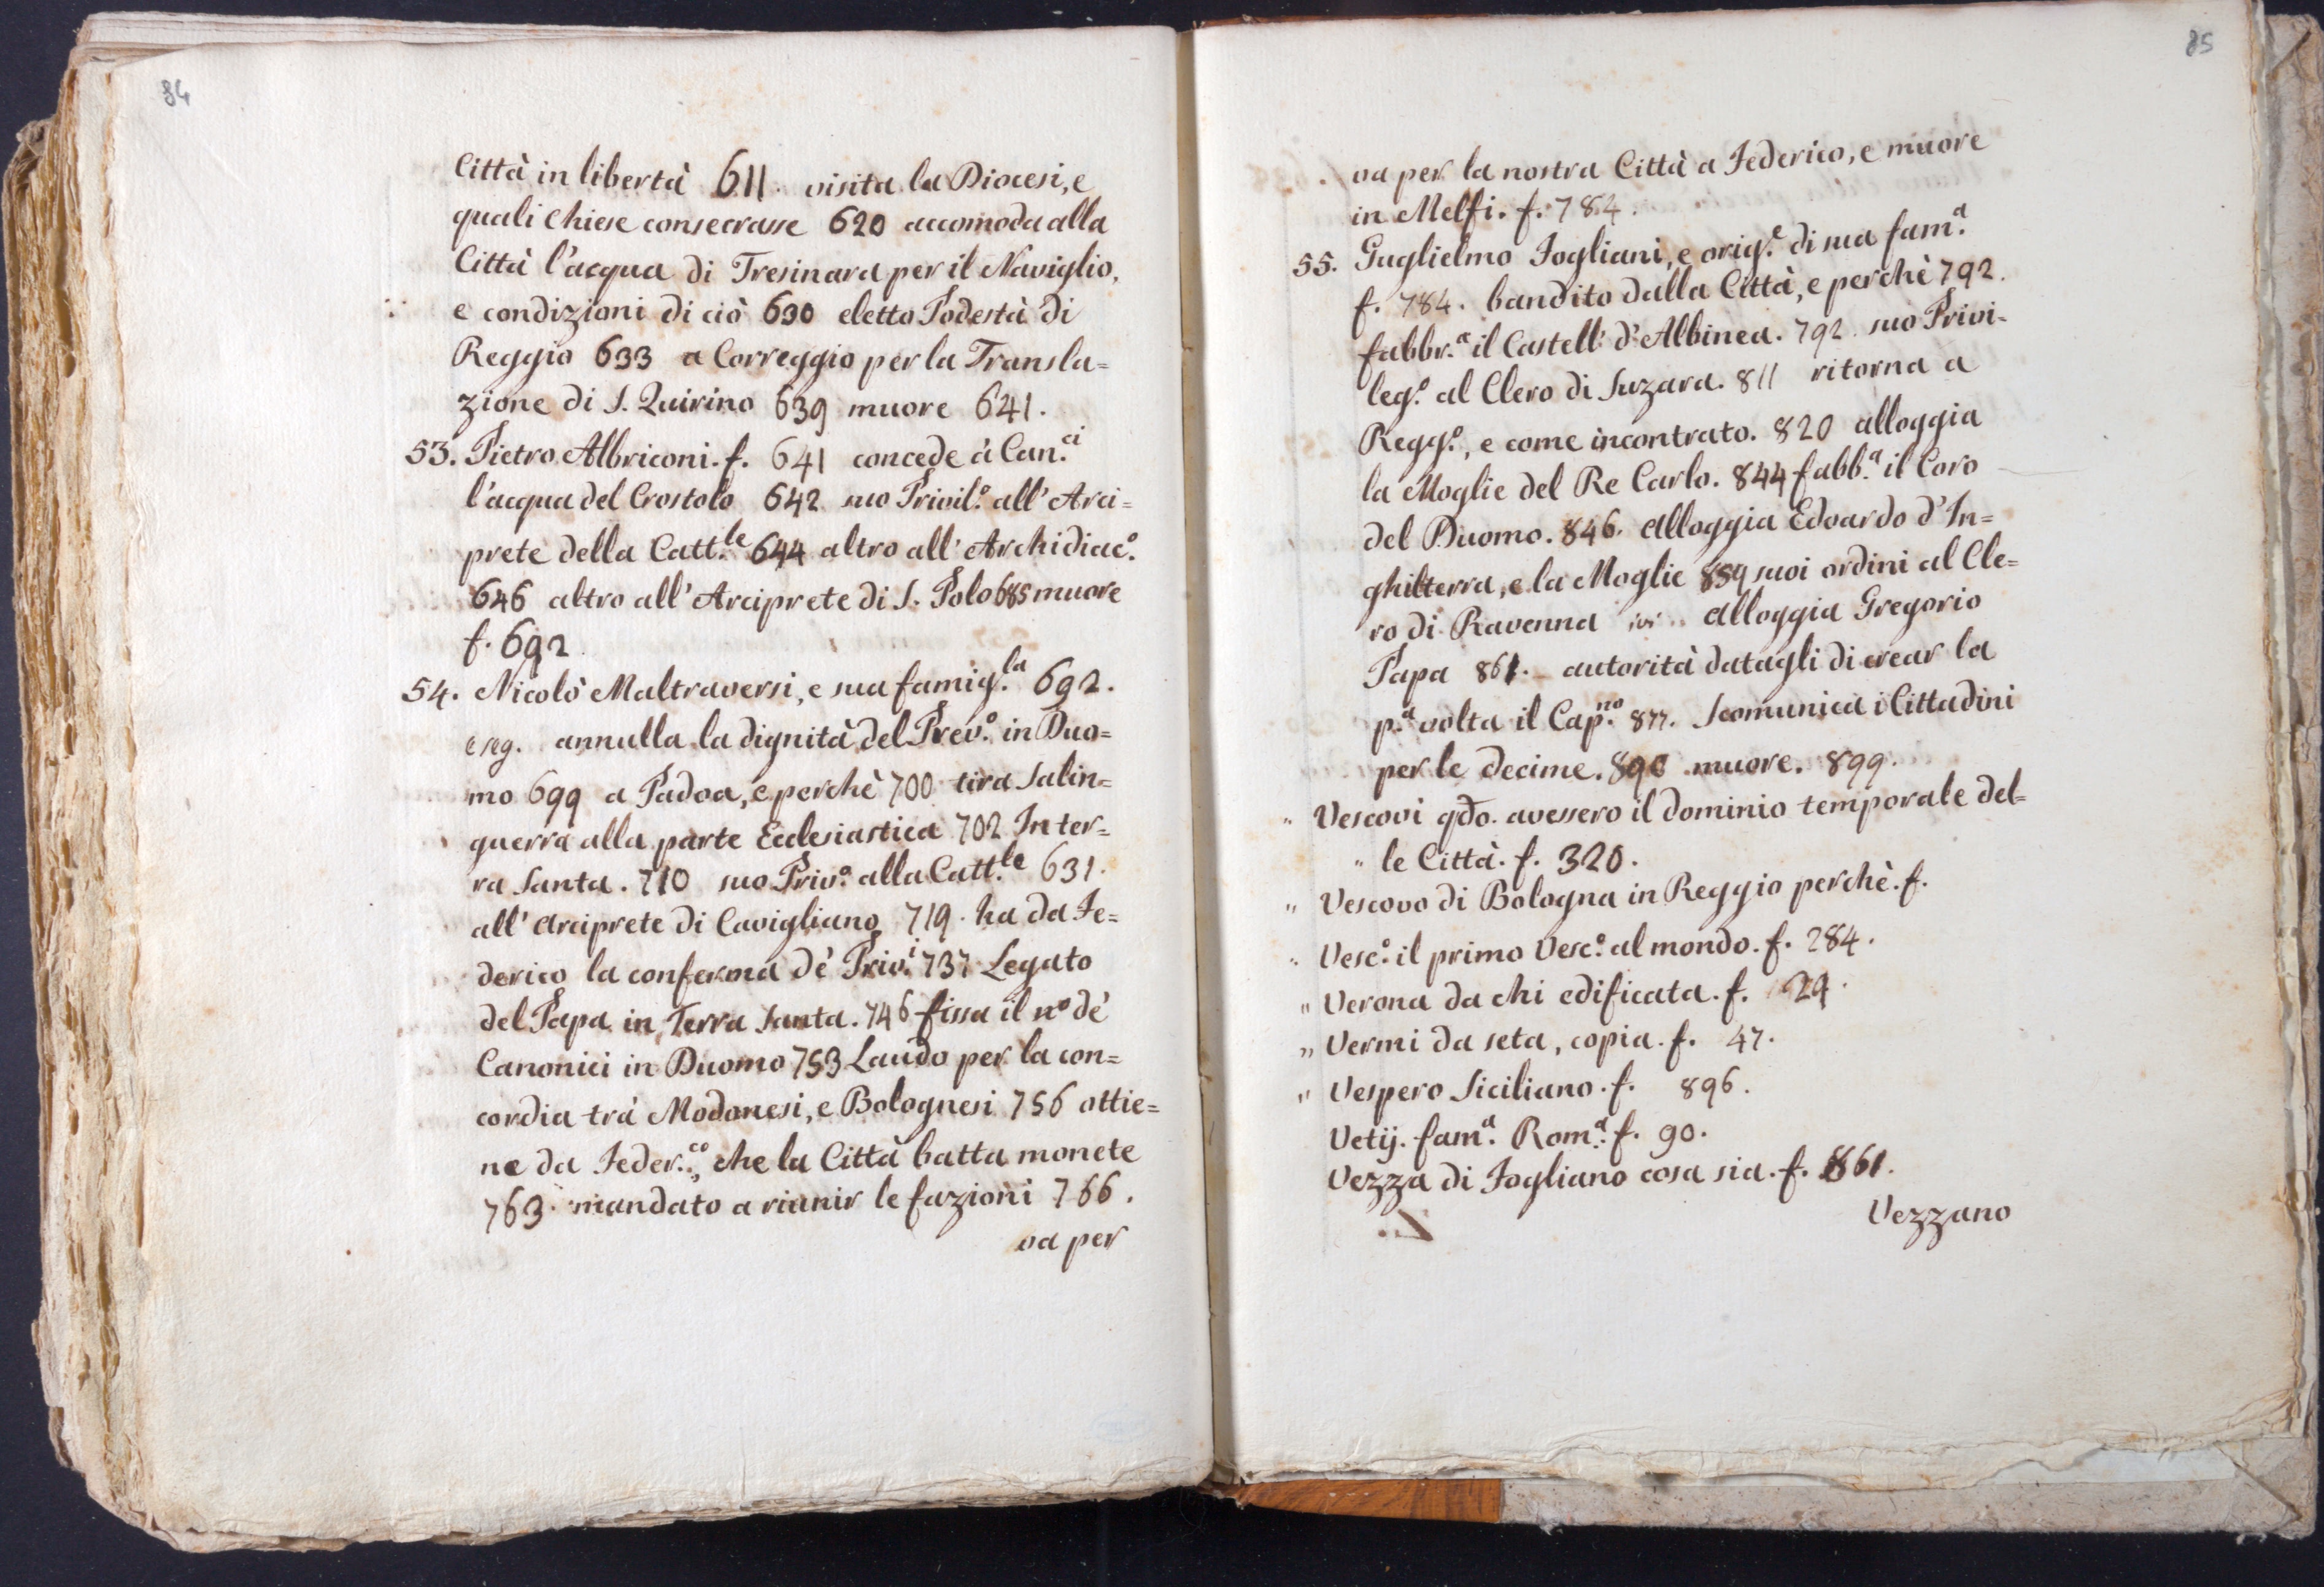 84
Città in libertà 611. visita la Diocesi, e
quali Chiese consecrasse 620 accomoda alla
Città l'acqua di Tresinara per il Naviglio,
e condizioni di ciò 630 eletto Podestà di
Reggio 633 a Correggio per la Transla=
zione di S. Quirino 639 muore 641.
53. Pietro Albriconi. f. 641 concede à Can.ci
l'acqua del Crostolo 642 suo Privil.o all' Arci=
prete della Catt.le 644 altro all' Archidiac.o
646 altro all' Arciprete di S. Polo 685 muore
f. 692
54. Nicolò Maltraversi, e sua famig.la 692.
e seg. annulla la dignità del Prev.o in Duo=
mo 699 a Padoa, e perchè 700 tira Salin=
guerra alla parte Ecclesiastica 702 In ter=
ra Santa. 710 suo Priv.o alla Catt.le 631.
all' Arciprete di Cavigliano 719. ha da Fe=
derico la conferma de' Priv.i 737 Legato
del Papa in Terra Santa. 746 fissa il n.o de'
Canonici in Duomo 753 Laudo per la con=
cordia trà Modonesi, e Bolognesi 756 ottie=
ne da Feder.co, che la Città batta monete
763. mandato a riunir le fazioni 766.
va per
85
va per la nostra Città a Federico, e muore
in Melfi. f. 784.
55. Guglielmo Fogliani, e orig.e di sua fam.a
f. 784. bandito dalla Città, e perchè 792.
fabbr.a il Castell' d'Albinea. 792. suo Privi-
leg.o al Clero di Suzara. 811 ritorna a
Regg.o, e come incontrato. 820 alloggia
la Moglie del Re Carlo. 844 fabb.a il Coro
del Duomo. 846. Alloggia Edoardo d'In=
ghilterra, e la Moglie 859 suoi ordini al Cle=
ro di Ravenna ivi. Alloggia Gregorio
Papa 861. autorità datagli di crear la
p.a volta il Cap.no 877. Scomunica i Cittadini
per le decime. 890 muore. 899.
" Vescovi qdo. avessero il dominio temporale del=
" le Città. f. 320.
" Vescovo di Bologna in Reggio perchè. f.
" Vesc.o il primo Vesc.o al mondo. f. 284.
" Verona da chi edificata. f. 29.
" Vermi da seta, copia. f. 47.
" Vespero Siciliano. f. 896.
Vetij. fam.a Rom.a f. 90.
Vezza di Fogliano cosa sia. f. 861.
Vezzano